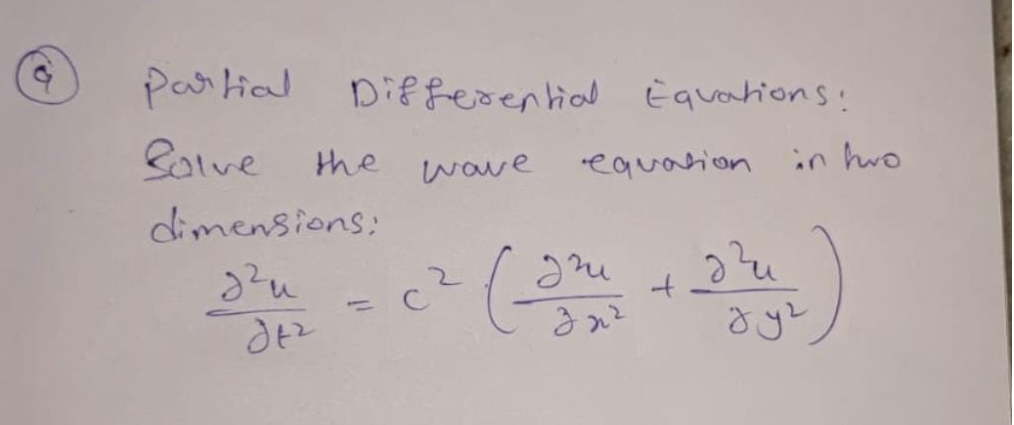 Q Partial Differential Equations:
Solve the wave equation in two
dimensions:
∂²u/∂t² = c² ( ∂²u/∂x² + ∂²u/∂y² )